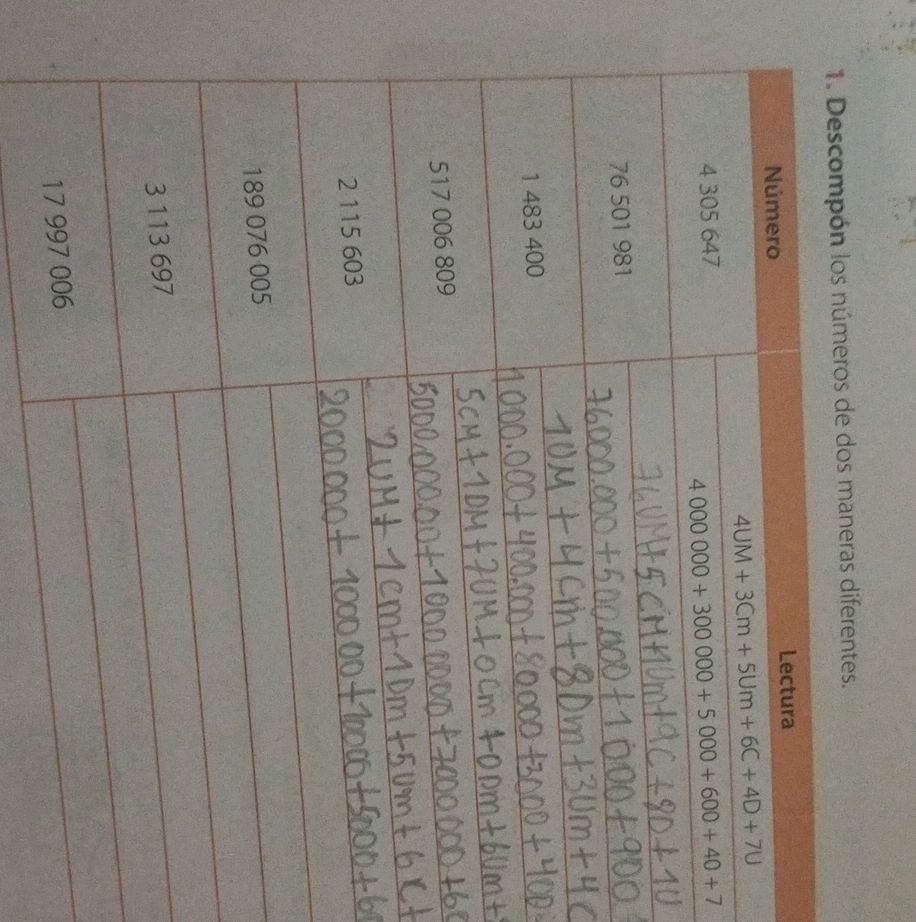 1. Descompón los números de dos maneras diferentes.
Número Lectura
4 305 647
4UM + 3Cm + 5Um + 6C + 4D + 7U
4 000 000 + 300 000 + 5 000 + 600 + 40 + 7
76 501 981
76UM+5CM+1Um+9C+8D+1U
76.000.000+500.000+1000+900
1 483 400
1UM+4Cm+8Dm+3Um+4C
1000.000+400.000+80000+3000+400
517 006 809
5CM+1DM+7UM+0Cm+0Dm+6Um+
500.000.000+10000000+7000000+60
2 115 603
2UM+1Cm+1Dm+5Um+6C+
2000000+100000+10000+5000+60
189 076 005
3 113 697
17 997 006